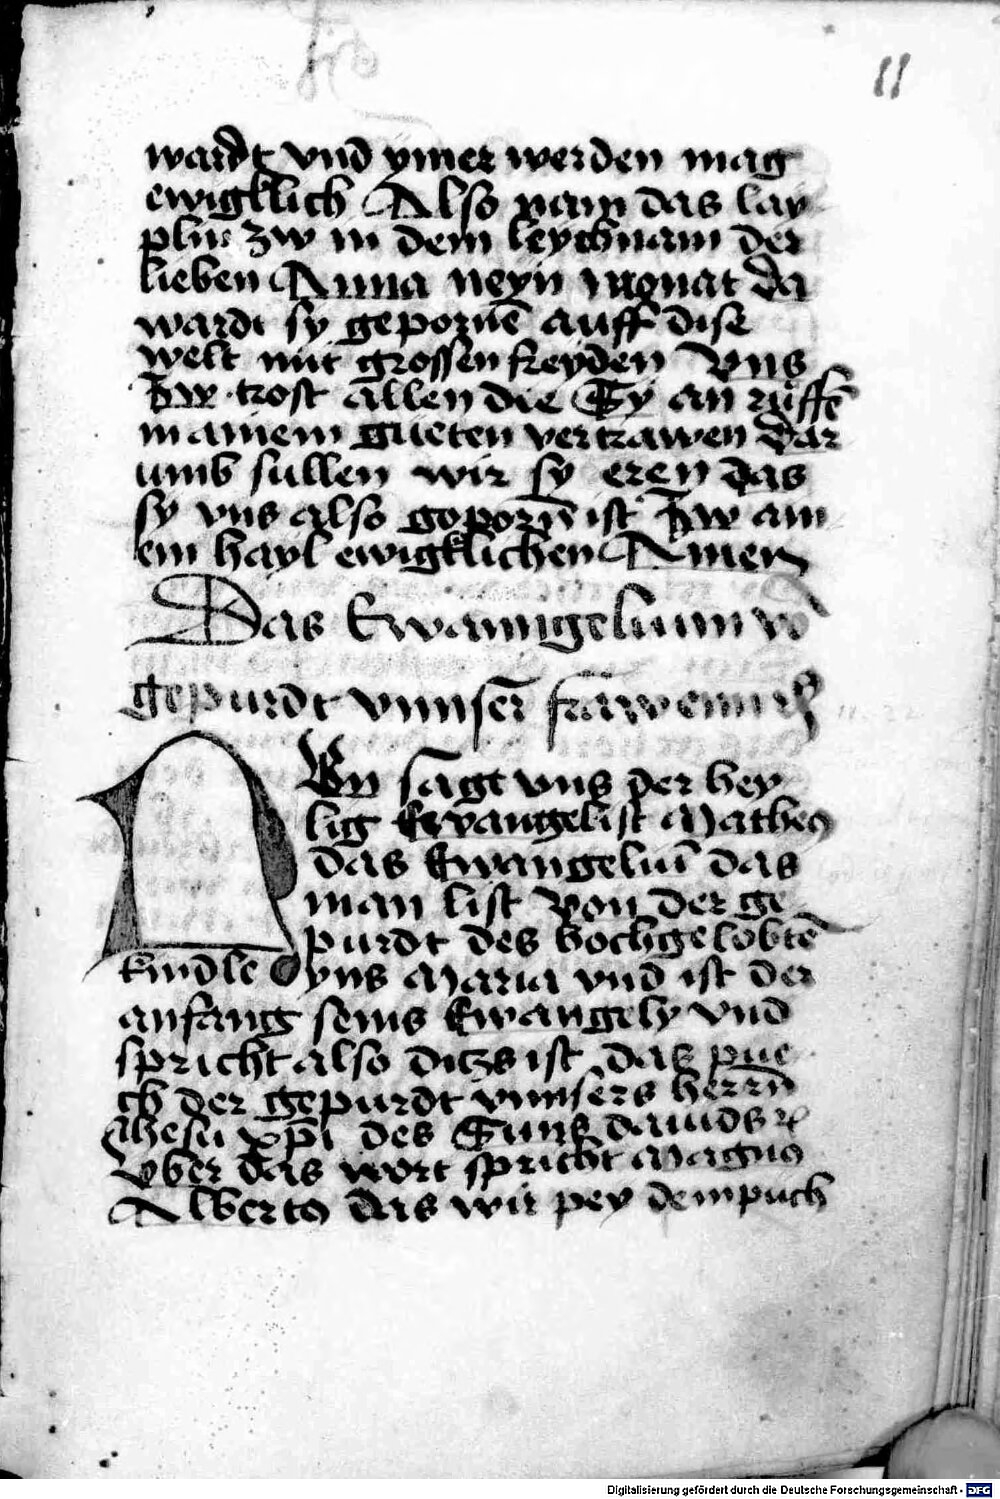 11
wardt vnd ymer werden mag
ewigklich Also nam das lay
plin zw in dem leychnam der
lieben Anna neyn monat da
wardt sy gepornē auff dise
welt mit grossen freyden Vns
Zw trost allen die Sy an rüffē
in ainem gueten vertrawen dar
umb sullen wir sy eren das
sy vns also goporn̄ ist Zw ain
em hayl ewigklichen Amen
Das Ewanngelium vō
gepurdt vnnser frawenn
Vn sagt vns der hey
lig Ewangelist Matheus
das Ewangeliū das
man list von der ge
purdt des hochgelobtē
kindle Dyns Maria vnd ist der
anfang seins Ewangely vnd
spricht also ditzs ist das pue
ch der gepurdt vnnsers herrn̄
Jhesu xp̄i des Suns dauids
Vber das wort spricht Magnus
Albertus das wir pey dem puch
Digitalisierung gefördert durch die Deutsche Forschungsgemeinschaft - DFG